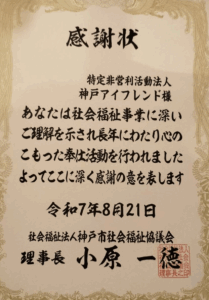 感謝状
特定非営利活動法人
神戸アイフレンド様
あなたは社会福祉事業に深い
ご理解を示され長年にわたり心の
こもった奉仕活動を行われました
よってここに深く感謝の意を表します
令和7年8月21日
社会福祉法人神戸市社会福祉協議会
理事長 小原一徳